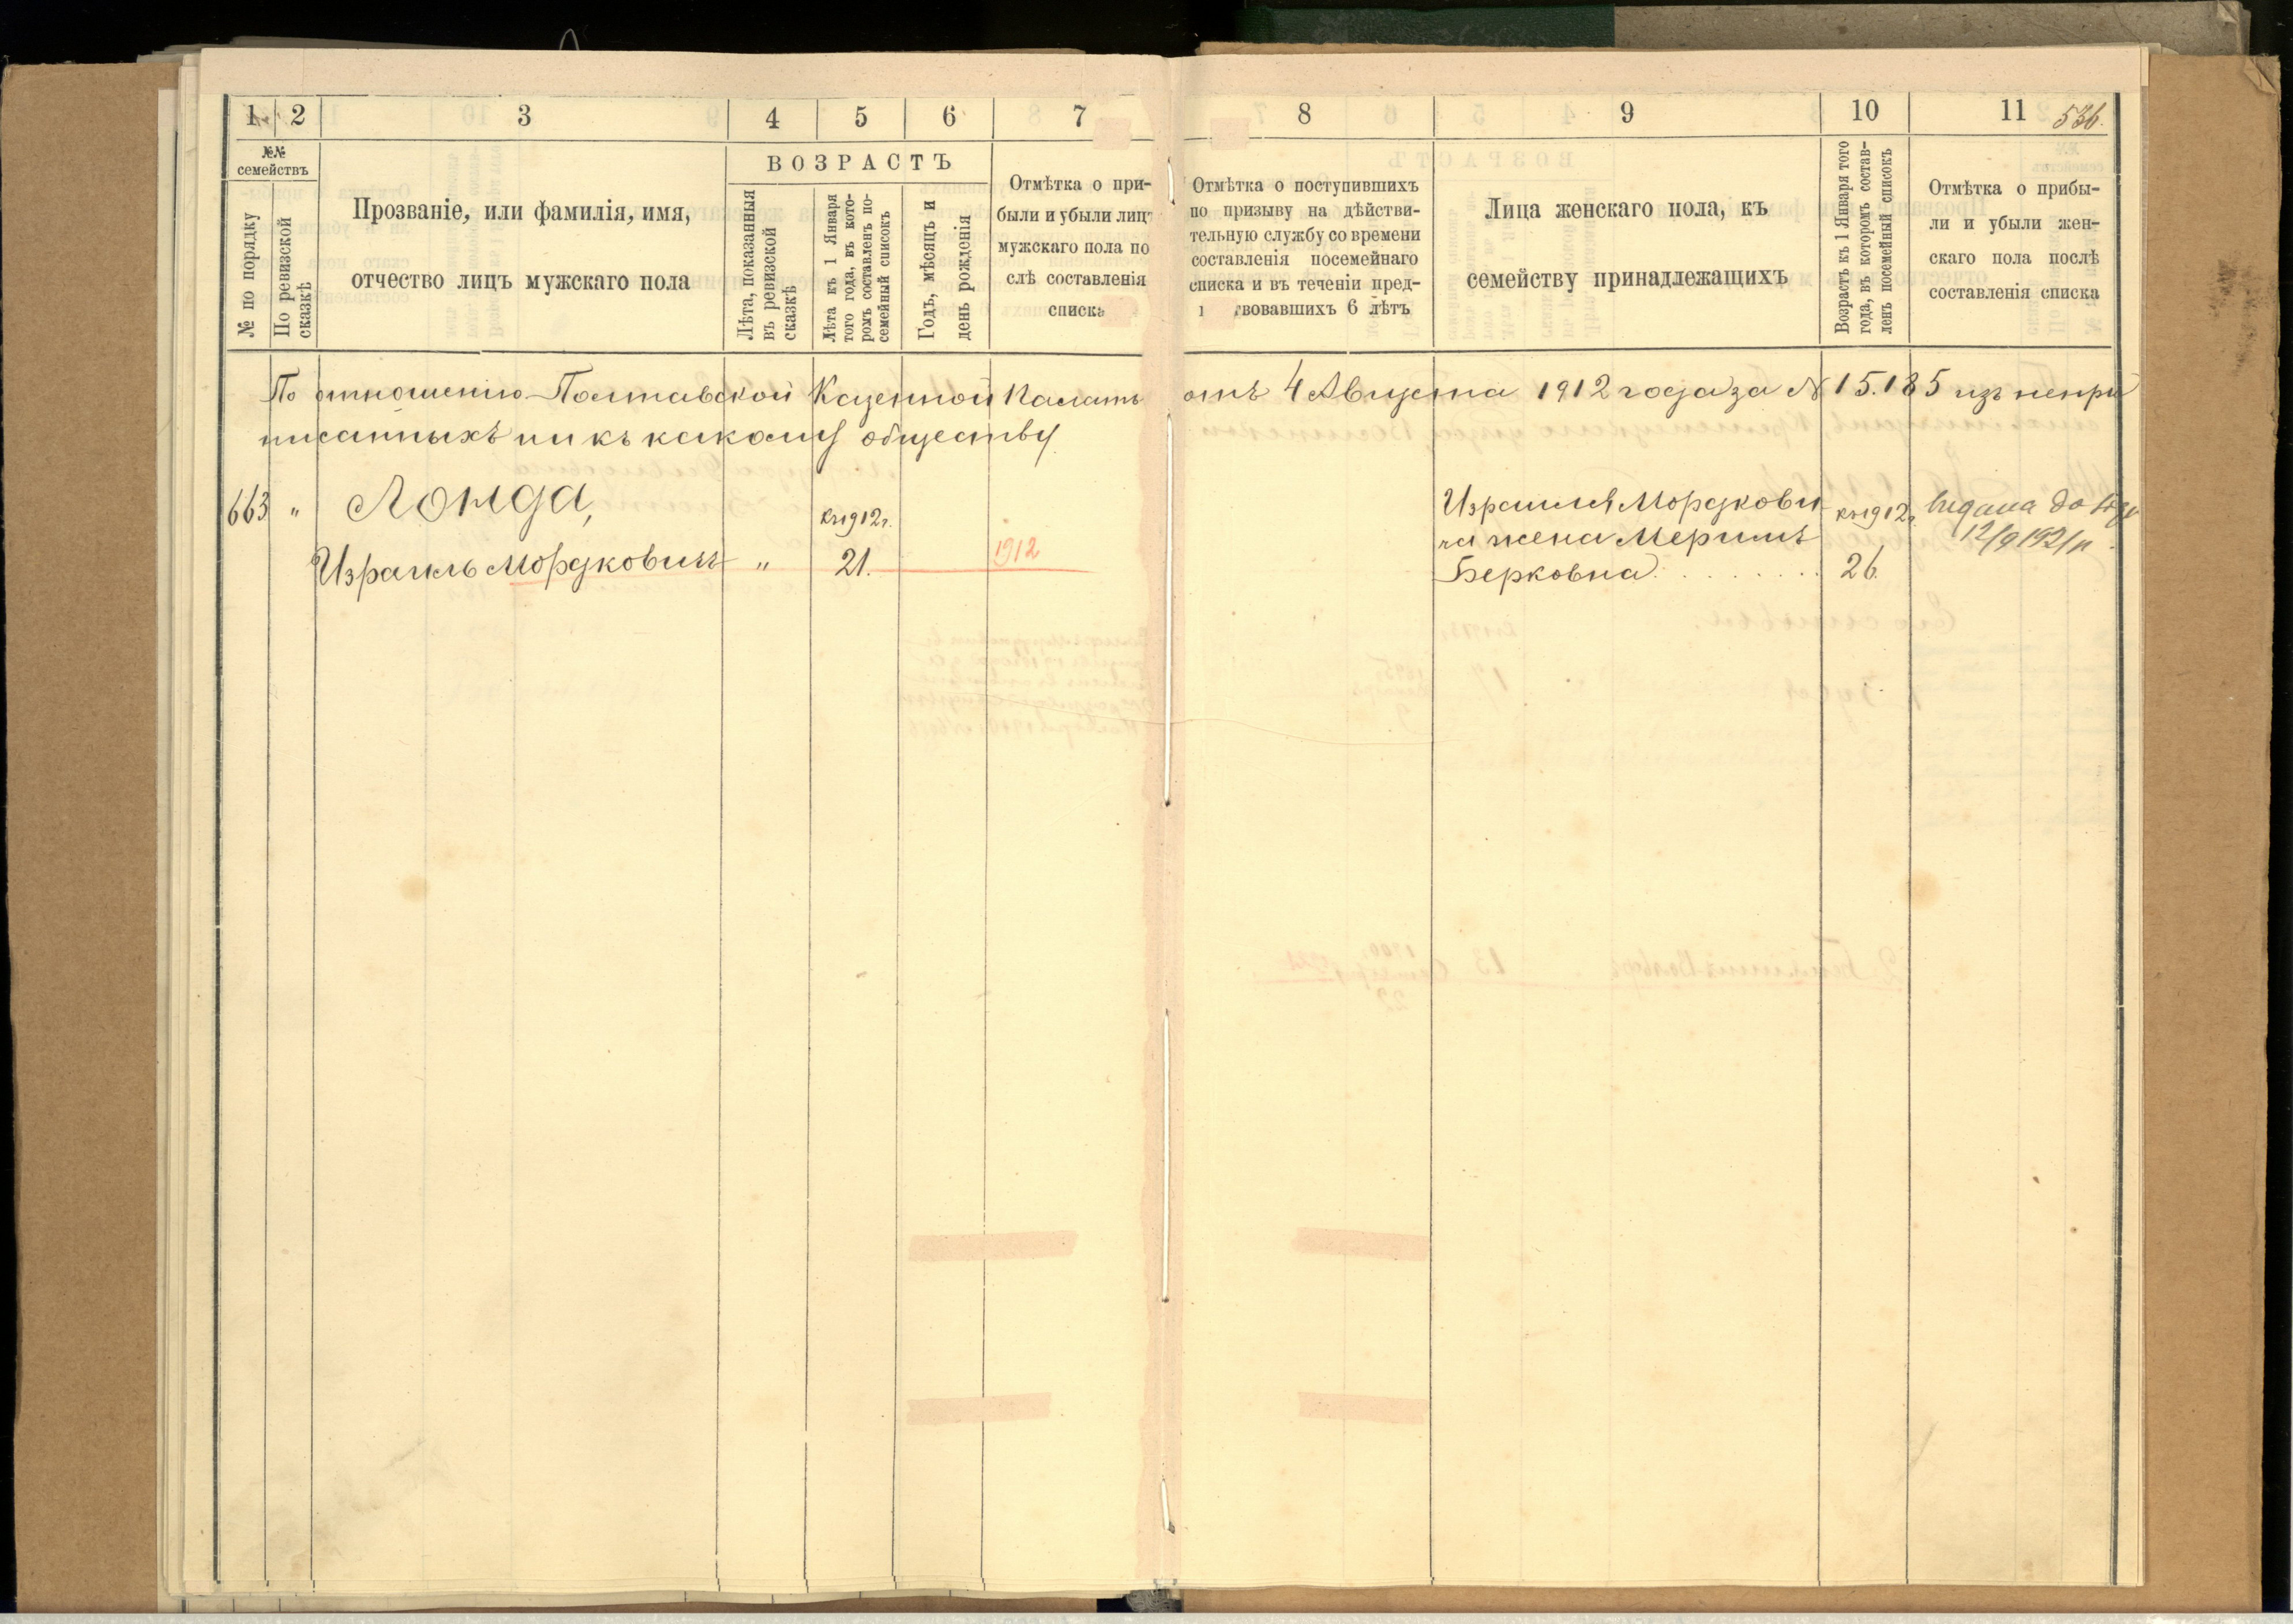 1 2 3 4 5 6 7 8 9 10 11 536.
№№ семействъ
№ по порядку
По ревизской сказкѣ
Прозваніе, или фамилія, имя,
отчество лицъ мужскаго пола
ВОЗРАСТЪ
Лѣта, показанныя
въ ревизской
сказкѣ
Лѣта къ 1 Января
того года, въ кото-
ромъ составленъ по-
семейный списокъ
Годъ, мѣсяцъ и
день рожденія
Отмѣтка о при-
были и убыли лицъ
мужскаго пола по
слѣ составленія
списка
Отмѣтка о поступившихъ
по призыву на дѣйстви-
тельную службу со времени
составленія посемейнаго
списка и въ теченіи пред-
твовавшихъ 6 лѣтъ
Лица женскаго пола, къ
семейству принадлежащихъ
Возрастъ къ 1 Января того
года, въ которомъ состав-
ленъ посемейный списокъ
Отмѣтка о прибы-
ли и убыли жен-
скаго пола послѣ
составленія списка
По отношенію Полтавской Казенной Палаты отъ 4 Августа 1912 года за № 15.185 изъ непри
писанныхъ ни къ какому обществу
663 " Лонда,
къ 1912 г.
Израиль Мордковичъ " 21. 1912
Израиля Мордкови
ча жена Меримъ
Берковна
къ 1912 г.
26.
видана
12/9 192